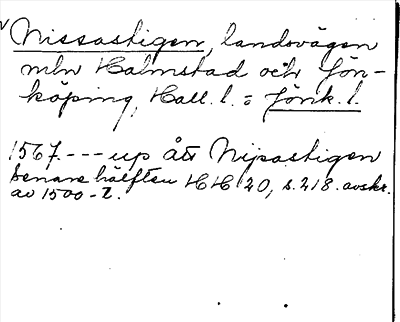 v Nissastigen, landsvägen
mln Halmstad och Jön-
köping, Hall. l. = Jönk. l.
1567. --- up ått Nijsastigen
senare hälften HH 20, s. 218. avskr.
av 1500-t.